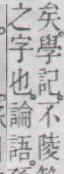 矣。學記。不陵
之字也。論語。